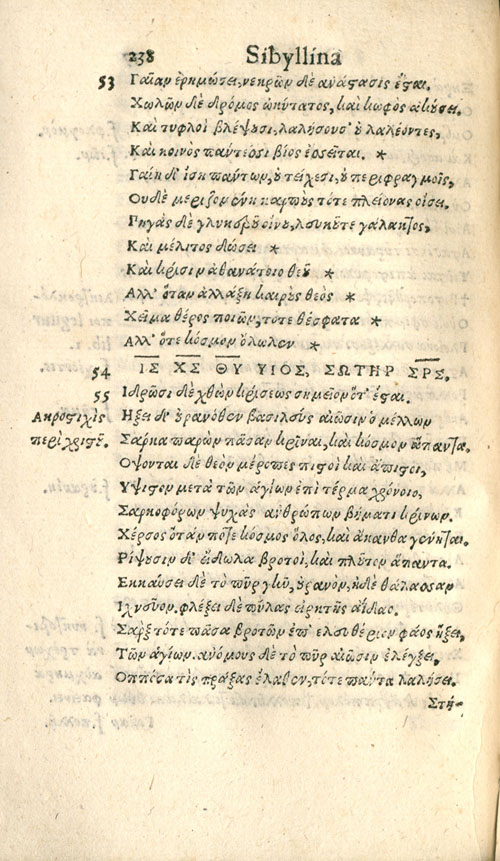 238 Sibyllina
53 Γαῖαν ἐρημώσει, νεκρῶν δὲ ἀνάστασις ἔσται.
Χωλῶν δὲ δρόμος ὠκύτατος, καὶ κωφὸς ἀκούσει.
Καὶ τυφλοὶ βλέψουσι, λαλήσουσ' οὐ λαλέοντες,
Καὶ κοινὸς πάντεσσι βίος ἐσσεῖται. *
Γαίη δ' ἴση πάντων, οὐ τείχεσι, οὐ περιφραγμοῖς,
Οὐδὲ μεριζομένη καρποὺς τότε πλείονας οἴσει.
Πηγὰς δὲ γλυκεροῦ οἴνου, λευκοῦτε γάλακτος,
Καὶ μέλιτος δώσει *
Καὶ κρίσιν ἀθανάτοιο θεοῦ *
Αλλ' ὅταν ἀλλάξη καιροὺς θεὸς *
Χεῖμα θέρος ποιῶν, τότε θέσφατα *
Αλλ' ὅτε κόσμον ὄλωλεν *
54 ΙΣ ΧΣ ΘΥ ΥΙΟΣ, ΣΩΤΗΡ ΣΡΣ.
55 Ιδρῶσι δὲ χθὼν κρίσεως σημεῖον ὅτ' ἔσται.
Ακροστιχὶς Ηξει δ' οὐρανόθεν βασιλεὺς αἰῶσιν ὁ μέλλων
περὶ χριστοῦ. Σάρκα παρὼν πᾶσαν κρῖναι, καὶ κόσμον ἅπαντα.
Οψονται δὲ θεὸν μέροπες πιστοὶ καὶ ἄπιστοι,
Υψιστον μετὰ τῶν ἁγίων ἐπὶ τέρμα χρόνοιο,
Σαρκοφόρων ψυχὰς ἀνθρώπων βήματι κρίνων.
Χέρσος ὅτάν ποτε κόσμος ὅλος, καὶ ἄκανθα γένηται.
Ρίψουσιν δ' εἴδωλα βροτοὶ, καὶ πλοῦτον ἅπαντα.
Εκκαύσει δὲ τὸ πῦρ γῆν, οὐρανὸν, ἠδὲ θάλασσαν
Ιχνεῦον. φλέξει δὲ πύλας εἱρκτῆς ἀΐδαο.
Σάρξ τότε πᾶσα βροτῶν ἐπ' ἐλευθέριον φάος ἥξει,
Τῶν ἁγίων. ἀνόμους δὲ τὸ πῦρ αἰῶσιν ἐλέγξει.
Οππόσα τὶς πράξας ἔλαθεν, τότε πάντα λαλήσει.
Στή-